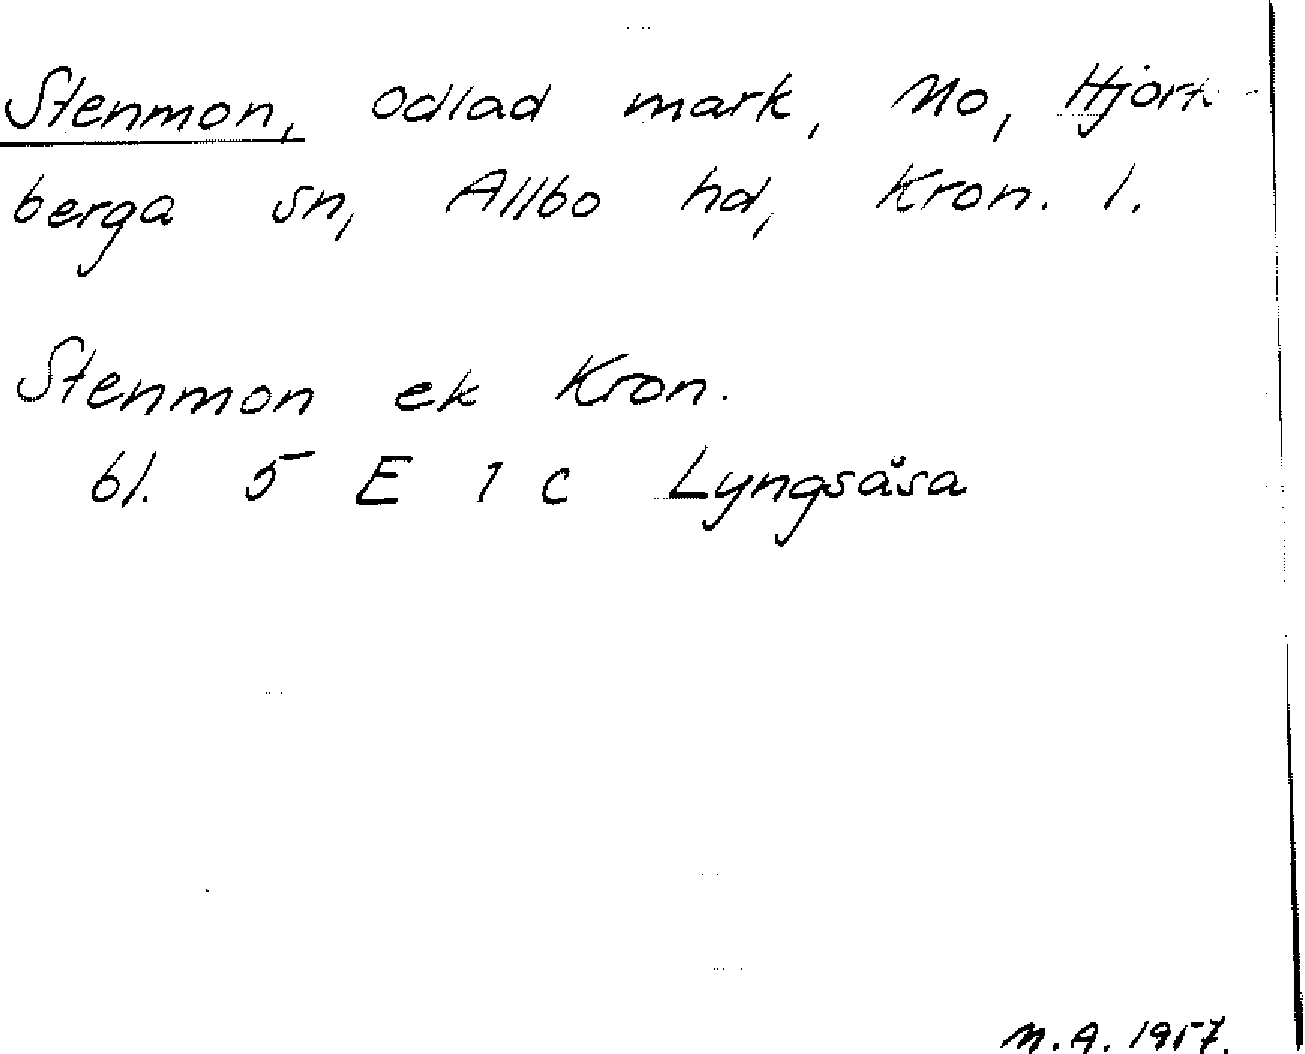 Stenmon, odlad mark, Mo, Hjort-
berga sn, Allbo hd, Kron. l.
Stenmon ek Kron.
bl. 5 E 1 c Lyngsåsa
M.A. 1957.